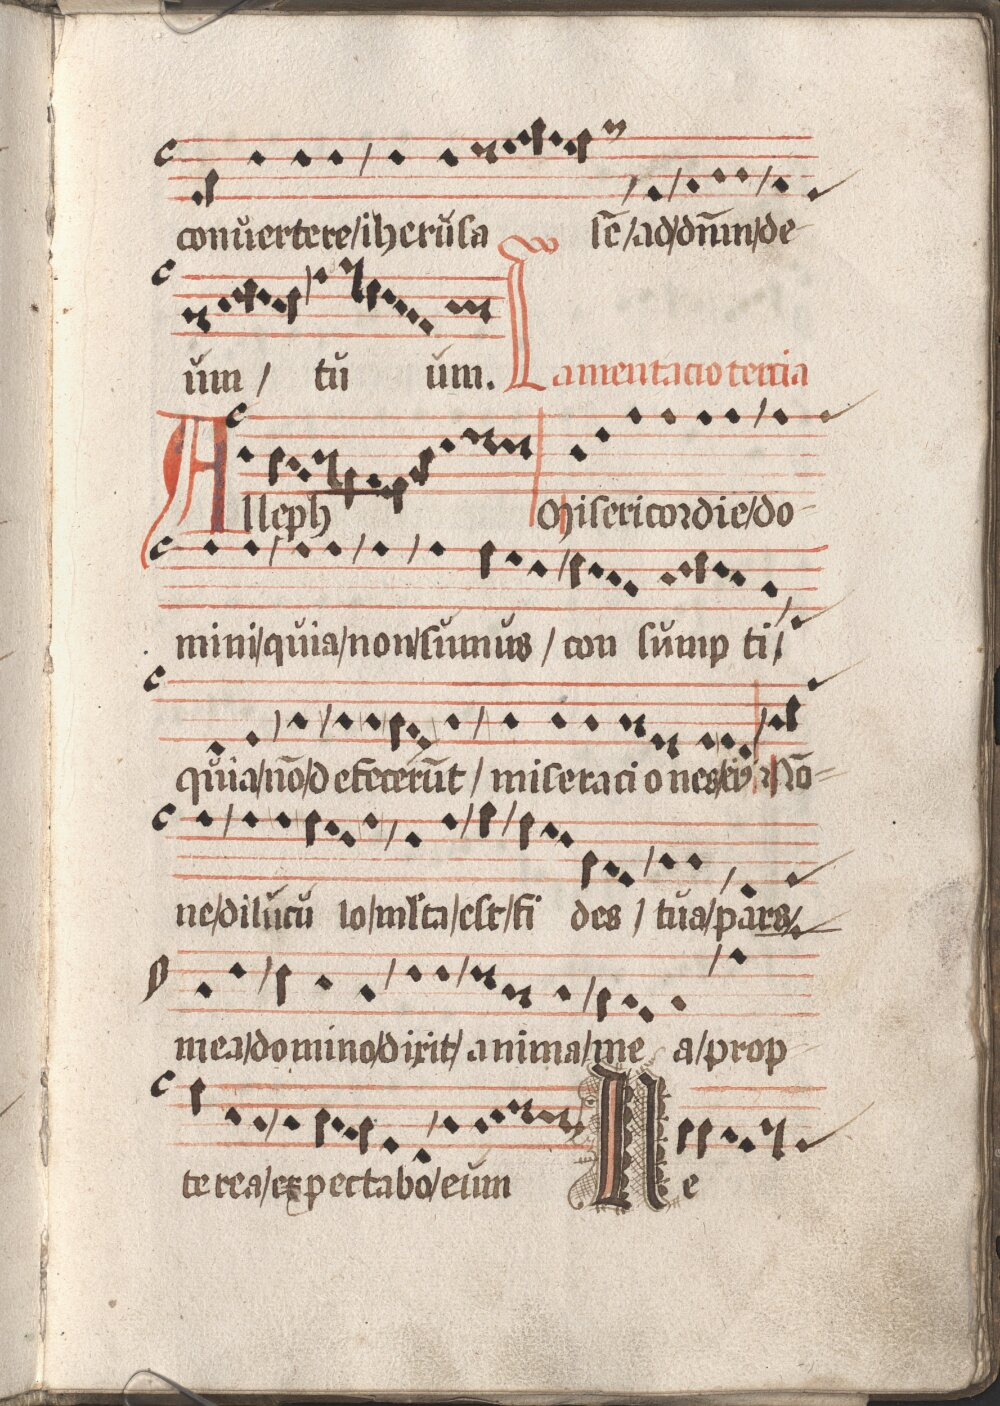 conuertere/iherusa sē/ad/dn̄m/de-
um/ tu um. Lamentacio tercia
Alleph Misericordie/do-
mini/quia/non/sumus/con sump ti/
quia/nō/defecerūt/miseraciones/ei9 Nō-
ne/dilucu lo/ml̄ta/est/fi des/tua/pars/
mea/domino/dixit/anima/me a/prop-
terea/expectabo/eum Ne